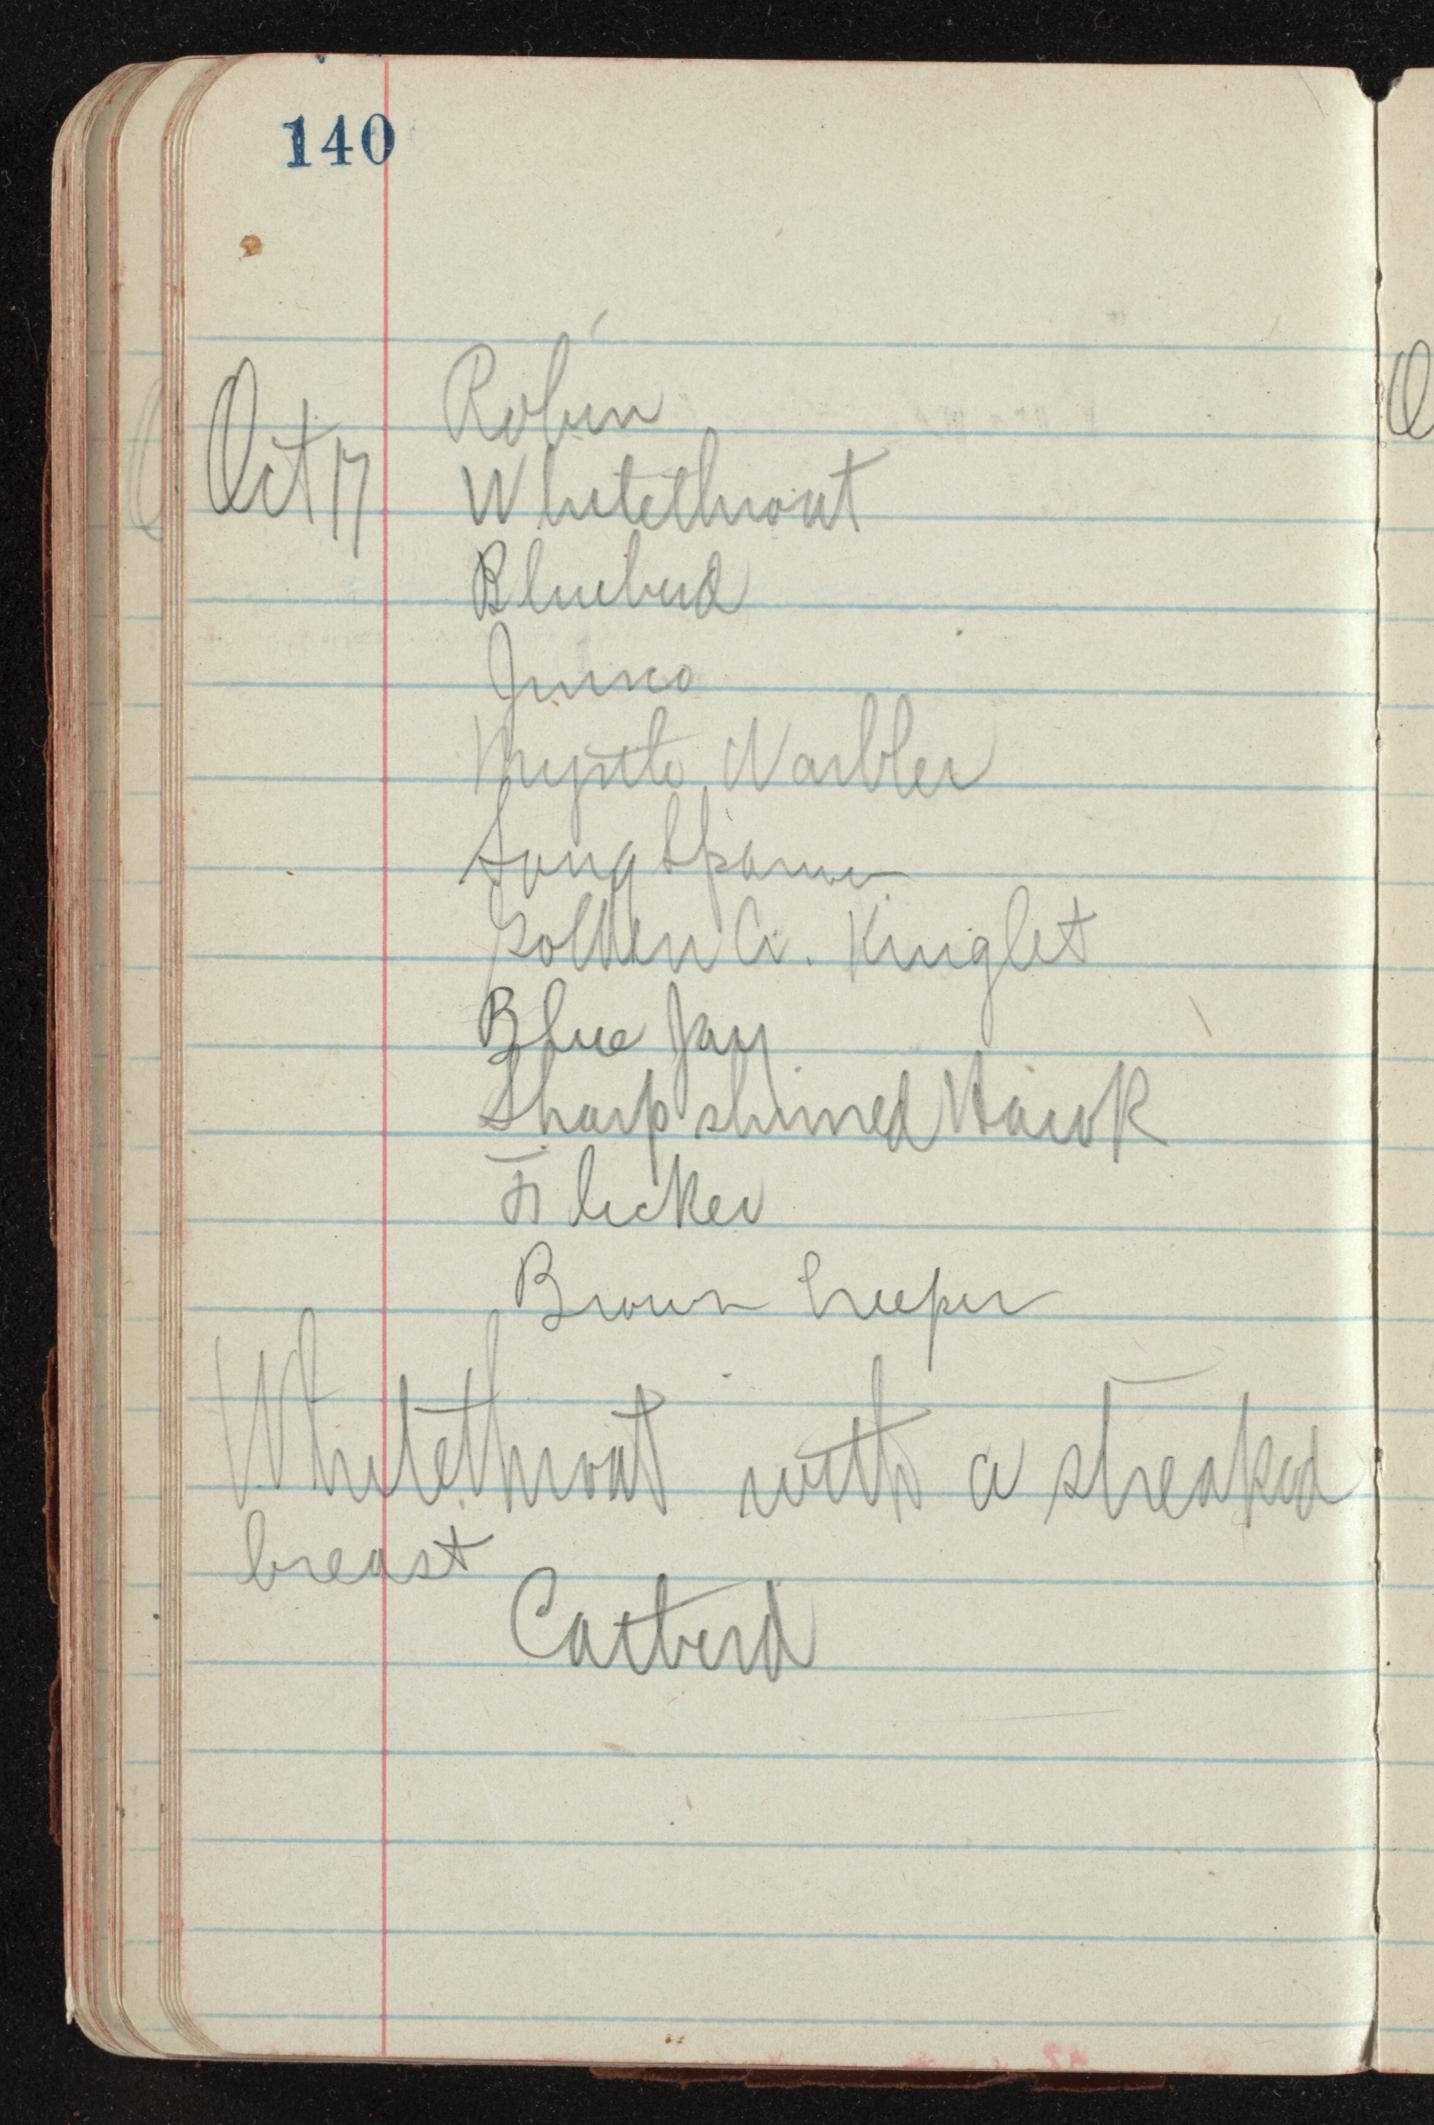 140
Oct 17 Robin
Whitethroat
Bluebird
Junco
Myrtle Warbler
Song Sparrow
Golden Cr. Kinglet
Blue Jay
Sharp shinned Hawk
Flicker
Brown Creeper
Whitethroat with a streaked
breast
Catbird